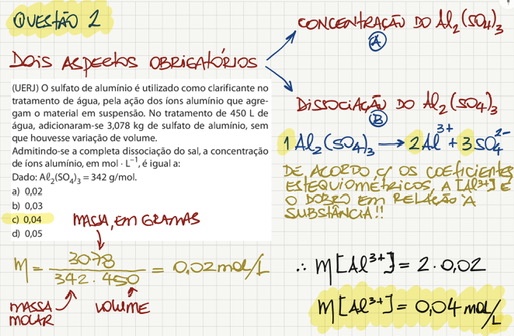 QUESTÃO 2
CONCENTRAÇÃO DO Al₂(SO₄)₃
A
DOIS ASPECTOS OBRIGATÓRIOS
(UERJ) O sulfato de alumínio é utilizado como clarificante no
tratamento de água, pela ação dos íons alumínio que agre-
gam o material em suspensão. No tratamento de 450 L de
água, adicionaram-se 3,078 kg de sulfato de alumínio, sem
que houvesse variação de volume.
Admitindo-se a completa dissociação do sal, a concentração
de íons alumínio, em mol · L⁻¹, é igual a:
Dado: Aℓ₂(SO₄)₃ = 342 g/mol.
a) 0,02
b) 0,03
c) 0,04
d) 0,05
DISSOCIAÇÃO DO Al₂(SO₄)₃
B
1Al₂(SO₄)₃ → 2Al³⁺ + 3SO₄²⁻
DE ACORDO C/ OS COEFICIENTES
ESTEQUIOMÉTRICOS, A [Al³⁺] É
O DOBRO EM RELAÇÃO À
SUBSTÂNCIA!!
MASSA, EM GRAMAS
M = 3078 / 342 . 450 = 0,02 mol/L
MASSA MOLAR
VOLUME
∴ M[Al³⁺] = 2 . 0,02
M[Al³⁺] = 0,04 mol/L